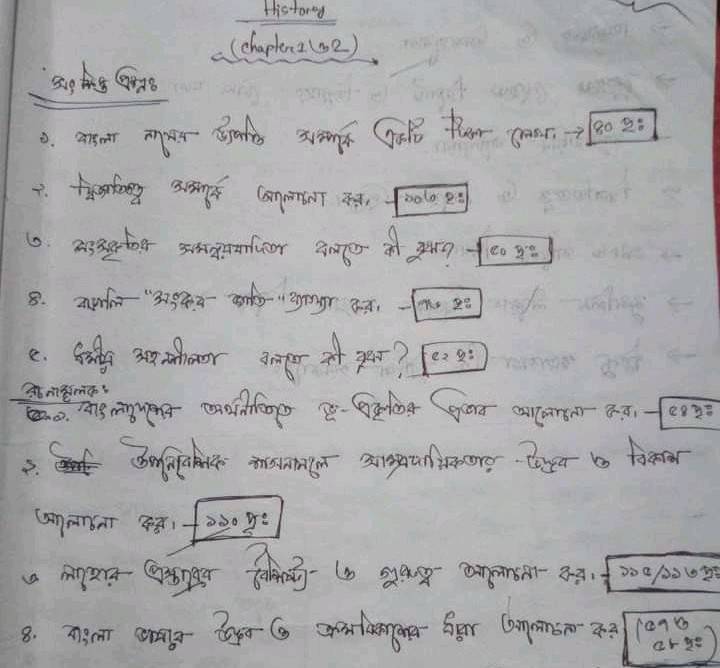 History
(chapter 1 ও 2)
সংক্ষিপ্ত প্রশ্নঃ
১. বাংলা নামের উৎপত্তি সম্পর্কে একটি টিকা লেখ। → ৪০ পৃঃ
২. দ্বিজাতিতত্ত্ব সম্পর্কে আলোচনা কর। - ১০৬ পৃঃ
৩. সংস্কৃতির সমন্বয়বাদিতা বলতে কী বুঝায় - ৫০ পৃঃ
৪. বাঙালি "সংকর জাতি" ব্যাখ্যা কর। - পৃঃ
৫. ধর্মীয় সহনশীলতা বলতে কী বুঝায়? ৫২ পৃঃ
রচনামূলক:
১. বাংলাদেশের অর্থনীতিতে ভূ-প্রকৃতির প্রভাব আলোচনা কর। - ৫৪ পৃঃ
২. উপনিবেশিক শাসনামলে সাম্প্রদায়িকতার উদ্ভব ও বিকাশ
আলোচনা কর। - ১১০ পৃঃ
৩ লাহোর প্রস্তাবের বৈশিষ্ট্য ও গুরুত্ব আলোচনা কর। - ১১৫/১১৬ পৃঃ
৪. বাংলা ভাষার উদ্ভব ও ক্রমবিকাশের ধারা আলোচনা কর (৫৭ ও
৫৮ পৃঃ